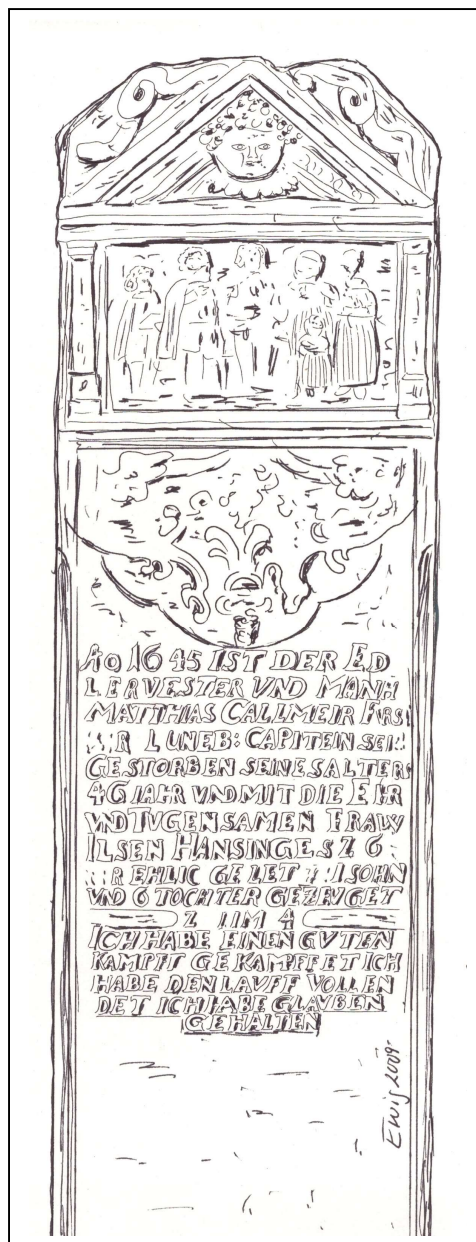 AO 1645 IST DER ED
LERVESTER VND MANH
MATTHIAS CALLMEIR FVRS
R LUNEB: CAPITEIN SEI
GESTORBEN SEINES ALTERS
46 IAHR VND MIT DIE EHR
VND TVGENSAMEN FRAW
ILSEN HANSINGES Z 6
R EHLIC GELET I SOHN
VND 6 TOCHTER GEZEVGET
2 TIM 4
ICH HABE EINEN GVTEN
KAMPFF GEKAMPFFET ICH
HABE DEN LAVFF VOLLEN
DET ICH HABE GLAVBEN
GEHALTEN
Ewig 2009